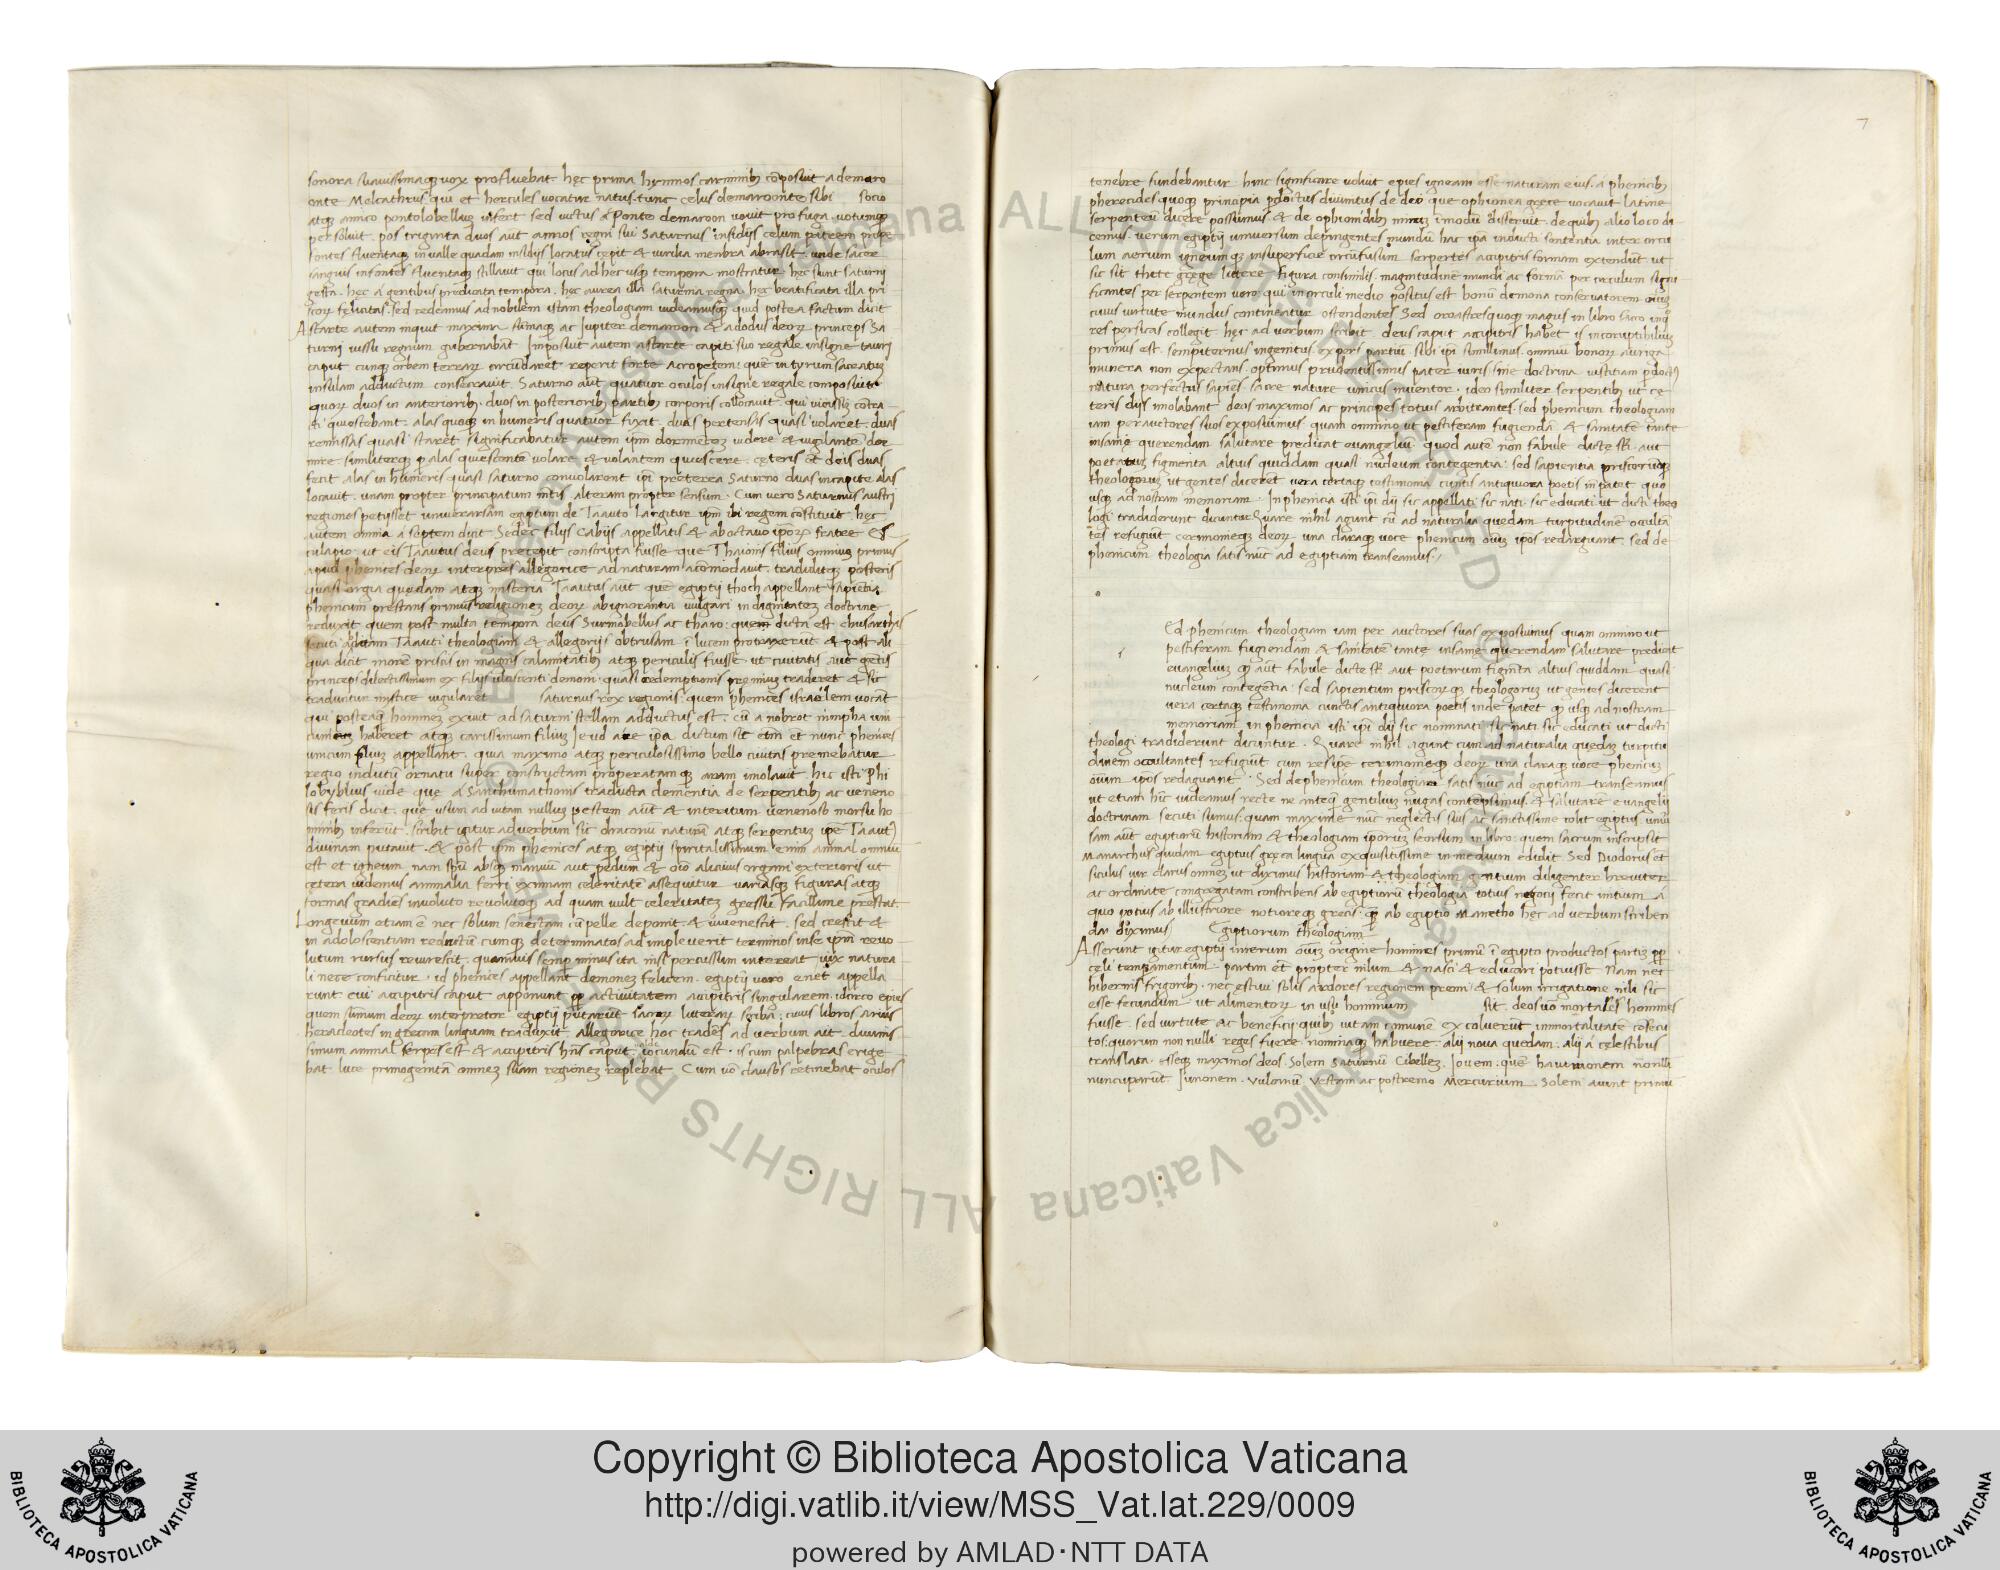 sonora suavissimaq; vox profluebat. hęc prima hymnos carminib; cōposuit a demaro
onte Melcathrus qui et hercules vocatur natus. tunc celus demaroonte sibi socio
atq; amico pontolobellum infert sed victus a Ponte demaroon vovit pro fuga. votumq;
persolvit. pos triginta duos aut annos regni sui Saturnus insidijs celum patrem prope
fontes fluentaq; in valle quadam insidijs locatus cępit & virilia menbra abrasit. unde sacer
sanguis in fontes fluentaq; stillavit. qui locus ad hec usq; tempora mostratur. hęc sunt saturni
gesta. hęc a gentibus predicata tempora. hęc aurea illa saturnia regna. hęc beatificata illa pri
scoꝝ felicitas. Sed redeamus ad nobilem istam theologiam videamusq; quid postea factum dicit
Astarte autem inquit maxima ac Jupiter demaroon & adodus deoꝝ princeps Sa
turni iussu regnum gubernabāt. Imposuit autem astarte capiti suo regale insigne tauri
caput cunq; orbem terraꝝ circūdaret reperit forte acropetem: quē in tyrum sacratam
insulam adductum consecravit. Saturno aūt quatuor oculos insigne regale composuit
quoꝝ duos in anteriorib; duos in posteriorib; partib; corporis collocavit. qui vicissim cōtra
&. quiescebant. alas quoq; in humeris quatuor fixit. duas pertensas quasi volaret. duas
remissas quasi staret significabatur autem ipm dormientem videre & vigilantē dor
mire. similiterq; alas quiescentē volare & volantem quiescere. cęteris ēt deis duas
fecit alas in humeris quasi saturno convolarent ipi preterea Saturno duas in capite alas
locavit. unam propter principatum mētis alteram propter sensum. Cum vero Saturnus austri
regiones petijsset universam egiptum de Taauto largitur ipm ibi regem cōstituit. hęc
autem omnia a septem dicit Sedec filijs Cabijs appellatis & ab octavo ipoꝝ fratre Es
culapio. ut eis Taautus deus precepit conscripta fuisse que Thaionis filius omnium primus
apud phenices deoꝝ interpres allegorice ad naturam acōmodavit. tradiditq; posteris
quasi orgia quedam atq; misteria Taautus aūt quē egiptij thoch appellant sapientia
phenicum prestans primus religionez deoꝝ ab ignorantia vulgari in dignitatez doctrine
reduxit quem post multa tempora deus Surmobellus ac tharo. quem dicta est chusarthis
secuti abditam Taauti theologiam & allegorijs obtrusam ī lucem protraxerūt. & post ali
qua dicit morē priscis in magnis calamitatib; atq; periculis fuisse. ut civitatis aut gētis
princeps dilectissimum ex filijs ulciscenti demoni. quasi redemptionis premium traderet & sic
traditur mistice iugularet saturnus rex regionis. quem phenices israelem vocāt
qui posteaq; hominez exuit ad saturni stellam adductus est. cū a nobrot nimpha uni
cum haberet atq; carissimum filium Jeud a re ipa dictum sic etm et nunc phenices
unicum filium appellant. quia maximo atq; periculosissimo bello civitas premebatur
regio indutū ornatu super constructam properatamq; aram imolavit. hic isti Phi
lobyblius vide que a Sanchumathonis traducta dementia de serpentib; ac veneno
sis feris dicit. que usum ad vitam nullum pestem aūt & interitum venenoso morsu ho
minib; inferūt. scribit igitur ad verbum sic draconū naturā atq; serpentum ipe Taaut
divinam putavit. & post ipm phenices atq; egiptij spiritalissimum enim animal omniu
est et igneum. nam spū absq; manuū aut pedum & oīo alicuius organi exterioris ut
cętera videmus animalia ferri eximiam celeritatē assequitur variasq; figuras atq;
formas gradiēs involuto revolutoq; ad quam vult celeritatez gressu facillime prestat.
Longevum etiam ē nec solum senectam cū pelle deponit & iuvenescit. sed crescit &
in adolescentiam reductū cumq; determinatos ad impleverit terminos in se ipm revo
lutum rursus revirescit. quamvis semp minus ita nisi percussum intereat vix natura
li nece conficitur. id phenices appellant demonez felicem. egiptij vero enet appella
runt cui accipitris caput apponunt ꝓpter activitatem accipitris singularem. idcirco epies
quem summum deoꝝ interpretor egiptij putarūt sacroꝝ litteraꝝ scriba. cuius libros arius
heracleotes in grecam linguam traduxit allegorice hoc tradēs ad verbum ait. divinis
simum animal serpēs est & accipitris hn̄s caput. valde iocundū est. is cum palpebras erige
bat luce primogenitā omnez suam regionez replebat. Cum vō clausos retinebat oculos
7
tenebre fundebantur. hinc significare voluit epies igneam esse naturam eius. a phenicib;
pherecides quoq; principia p̄doctus divinitus de deo que ophionea gręce vocavit. latine
serpentem dicere possumus & de ophionidib; mirū ī modū disseruit. de quib; alio loco di
cemus. verum egiptij universum depingentes mundū hac ipa inducti sententia inter circu
lum aerium igneumq; in superficie circūfusum serpentes accipitris formam extendūt ut
sic sit thete gręge littere figura consimilis. magnitudinē mundi ac formā per circulum signi
ficantes per serpentem vero qui in circuli medio positus est bonū demona conservatorem oīum
cuius virtute mundus contineatur ostendentes Sed oroastres quoq; magus in libro sacro inq̄
res persicas collegit hęc ad verbum scribit. deus caput accipitris habet is incorruptibilium
primus est. sempiternus ingenitus expers partiū sibi ipi simillimus. omniū bonoꝝ auriga
munera non expectans. optimus prudentissimus pater iuris. sine doctrina iustitiam p̄doct
natura perfectus sapiēs. sacre nature unicus inventor. ideo similiter serpentib; ut ce
teris dijs imolabant deos maximos ac principes totius arbitrantes. sed phenicum theologiam
iam per auctores suos exposuimus. quam omnino ut pestiferam fugiendā & sanitatē tante
insanię querendam salutare predicat evangelium. quod autē non fabule dicte sūt. aut
poetarum figmenta altius quiddam quasi nucleum contegentia: sed sapientia priscorūq;
theologorum ut gentes dicerēt vera certaq; testimonia cunctis antiquiora poetis in patet quo
usq; ad nostram memoriam. In phenicia isti ipi dij sic appellati sic nati. sic educati ut dicti theo
logi tradiderunt dicuntur. Quare nihil agunt cū ad naturalia quedam turpitudinē occultā
tes refugiūt cerimonieq; deoꝝ una claraq; voce phenicum oīum ipos redarguant. sed de
phenicum theologia satis nūc ad egiptiam transeamus.
s
Ed phenicum theologiam iam per auctores suos exposuimus quam omnino ut
pestiferam fugiendam & sanitatē tantę insanię querendam salutare predicat
evangelium qd aūt fabule dicte sūt aut poetarum figmēta altius quiddam quasi
nucleum contegētia: sed sapientum priscoꝝq; theologorum ut gentes dicerent
vera certaq; testimonia cunctis antiquiora poetis inde patet qd usq; ad nostram
memoriam in phenicia isti ipi dij sic nominati sic nati sic educati ut dicti
theologi tradiderunt dicuntur. Quare nihil agunt cum ad naturalia quedam turpitu
dinem occultantes refugiūt cum resipe cerimonieq; deoꝝ una claraq; voce phenicum
oīum ipos redarguant. Sed de phenicum theologia satis nūc ad egiptiam transeamus
ut etiam hīc videamus recte ne anteq̄ gentilium nugas contēpsimus. & salutarē evangelij
doctrinam secuti sumus. quam maxime nūc neglectis suis ac sanctissime colit egiptus. univ
sam aūt egiptiorū historiam & theologiam iporum seorsum in libro quem sacrum inscripsit
Manarchus quidam egiptius gręca lingua exquisitissime in medium edidit Sed Diodorus et
siculus vir clarus omnez ut diximus historiam & theologiam gentium diligenter breviter
ac ordinate congregatam conscribens ab egiptiorū theologia totius negocij fecit initium a
quo potius ab illustriore notioreq; grecis. qm ab egiptio Manetho hęc ad verbum scriben
da diximus Egiptiorum theologiam
Asserunt igitur egiptij in rerum oīum origine homines primū ī egipto productos partiz ꝓpter
cęli temperamentum. partim ēt propter nilum & nasci & educari potuisse. Nam nec
hibernis frigorib; nec ęstivi solis ardores regionem premi & solum irrigatione nili sic
esse fecundum ut alimentoꝝ in usu hominum sit. deos vō mortales homines
fuisse. sed virtute ac beneficij quib; vitam cōmunē excoluerūt immortalitatē cōsecu
tos: quorum non nulli reges fuere. nominaq; habuere. alij nova quedam. alij a cęlestibus
translata. esseq; maximos deos Solem Saturnū Cibellez Jovem: quē hammonem nōnulli
nuncuparūt Junonem. Vulcanū Vestam ac postremo Mercurium. Solem aiunt primū
Copyright © Biblioteca Apostolica Vaticana
http://digi.vatlib.it/view/MSS_Vat.lat.229/0009
powered by AMLAD·NTT DATA
BIBLIOTECA APOSTOLICA VATICANA
BIBLIOTECA APOSTOLICA VATICANA